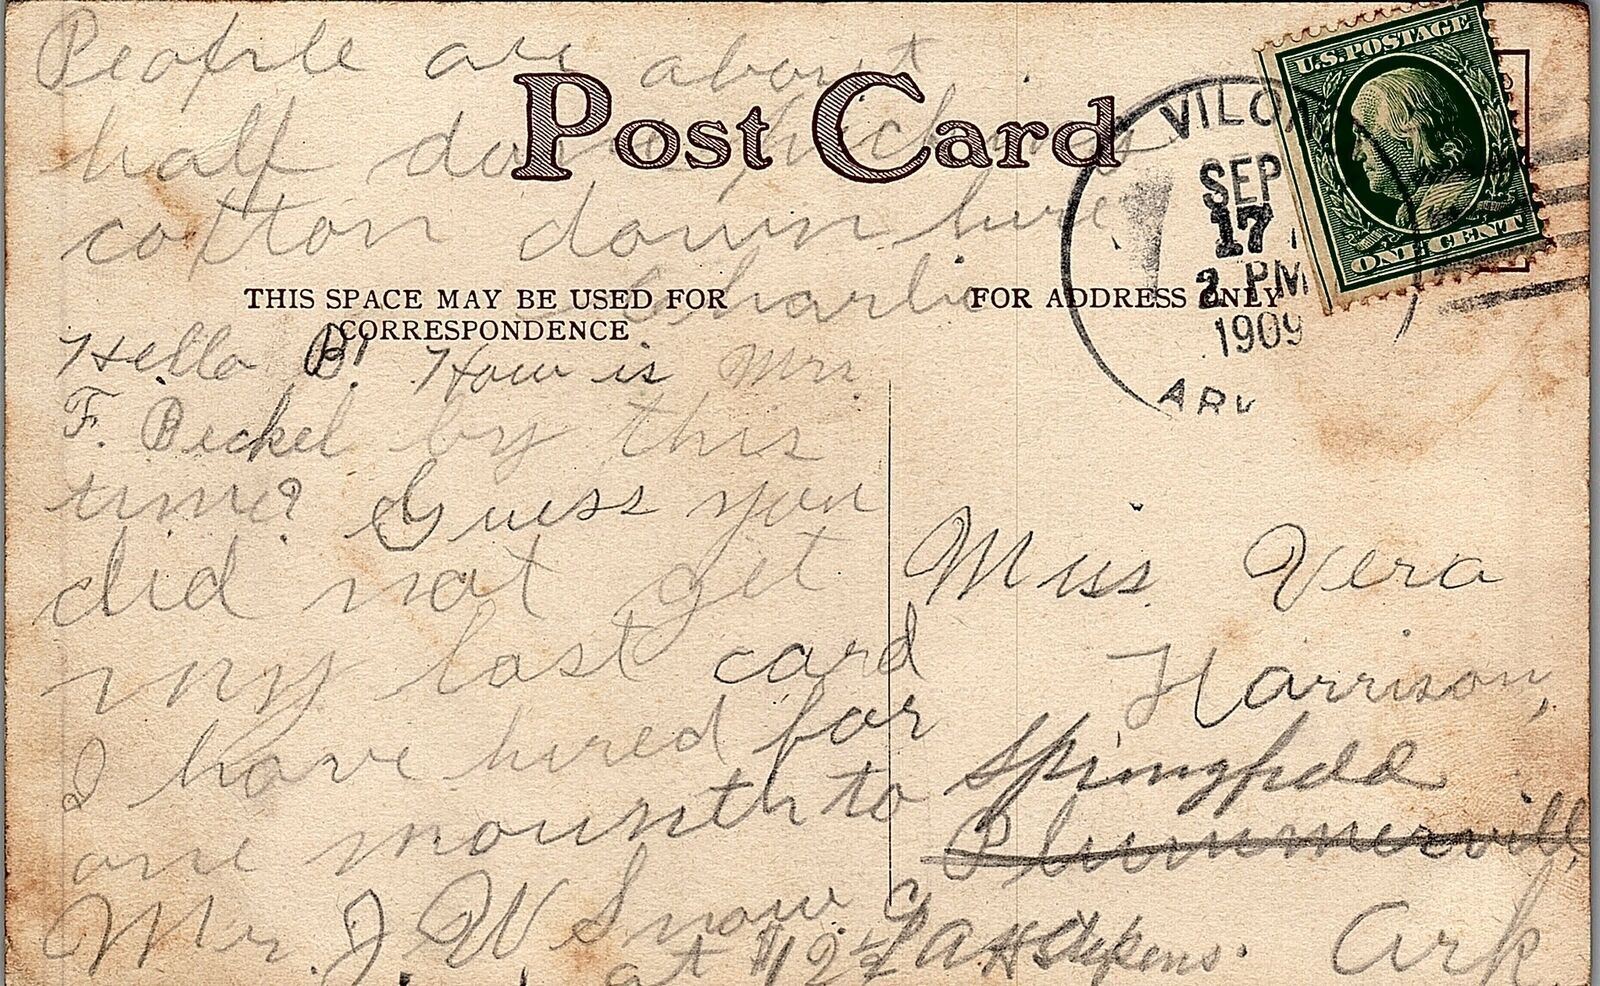 People are about
half done picking
cotton down here
Charlie
Post Card
THIS SPACE MAY BE USED FOR
CORRESPONDENCE
FOR ADDRESS ONLY
U.S. POSTAGE
ONE CENT
VILO
SEP
17
2 PM
1909
ARK
Hello B! How is Mr.
F. Beckel by this
time? Guess you
did not get
my last card
I have hired for
one mounth to
Mr. J. W. Snow.
at $12½
Miss Vera
Harrison,
Springfield
Plummerville,
Ark